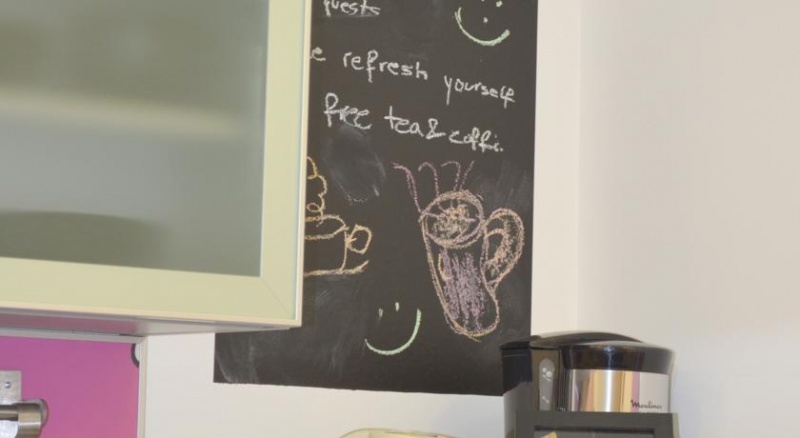 guests
e refresh yourself
free tea & coffi.
Moulinex